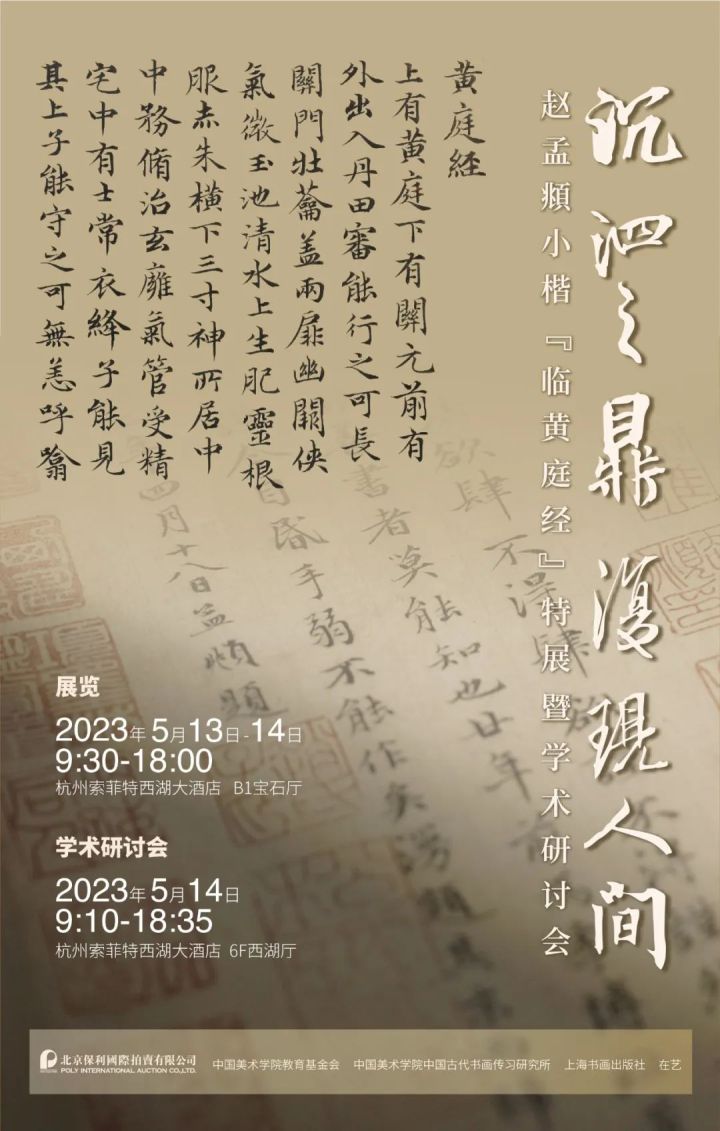 沉泗之鼎 復現人间
赵孟頫小楷『临黄庭经』特展暨学术研讨会
黄庭経
上有黄庭下有關元前有
外出入丹田審能行之可長
關門壯蘥盖兩扉幽闕俠
氣微玉池清水上生肥靈根
服赤朱横下三寸神所居中
中務脩治玄癰氣管受精
宅中有士常衣絳子能見
其上子能守之可無恙呼噏
欲肆不得肆
書者莫能知也廿年前
目昏手弱不能作矣
四月十八日孟頫題
展览
2023年5月13日-14日
9:30-18:00
杭州索菲特西湖大酒店 B1宝石厅
学术研讨会
2023年5月14日
9:10-18:35
杭州索菲特西湖大酒店 6F西湖厅
北京保利國際拍賣有限公司
POLY INTERNATIONAL AUCTION CO.,LTD.
中国美术学院教育基金会 中国美术学院中国古代书画传习研究所 上海书画出版社 在艺